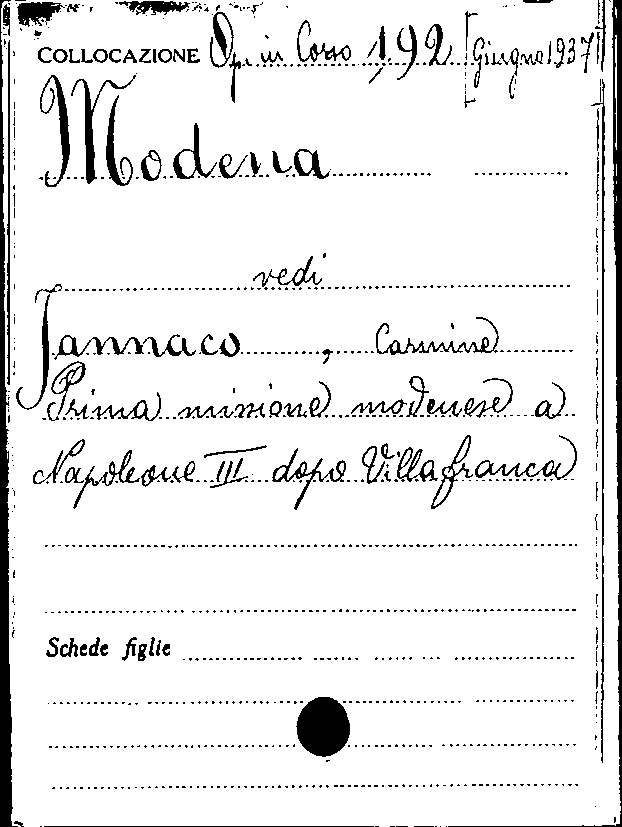 COLLOCAZIONE Op. in Corso 192 [Giugno 1937]
Modena
vedi
Jannaco, Carmine
Prima missione modenese a
Napoleone III dopo Villafranca
Schede figlie